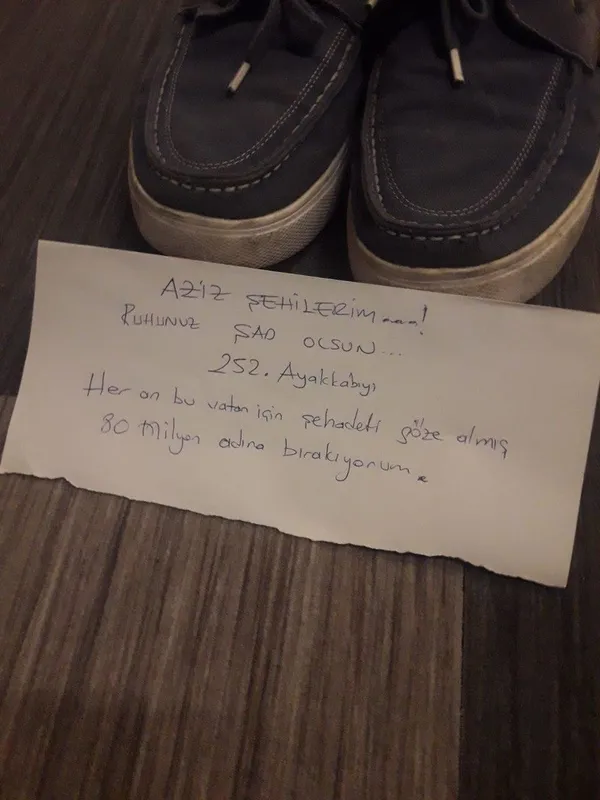 AZİZ ŞEHİLERİM....!
RUHUNUZ ŞAD OLSUN...
252. Ayakkabıyı
Her an bu vatan için şehadeti göze almış
80 milyon adına bırakıyorum.